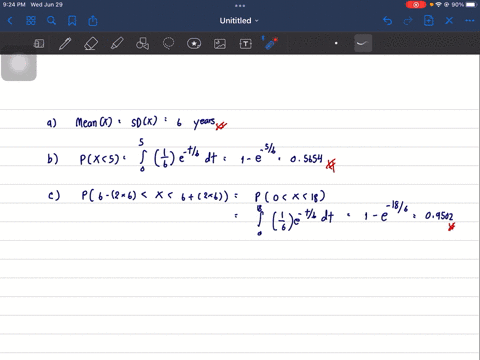 9:24 PM Wed Jun 29
90%
Untitled
a) Mean(X) = SD(X) = 6 years
b) P(X<5) = ∫₀⁵ (1/6) e^{-t/6} dt = 1 - e^{-5/6} = 0.5654
c) P(6-(2×6) < X < 6+(2×6)) = P(0 < X < 18)
= ∫₀¹⁸ (1/6) e^{-t/6} dt = 1 - e^{-18/6} = 0.9502